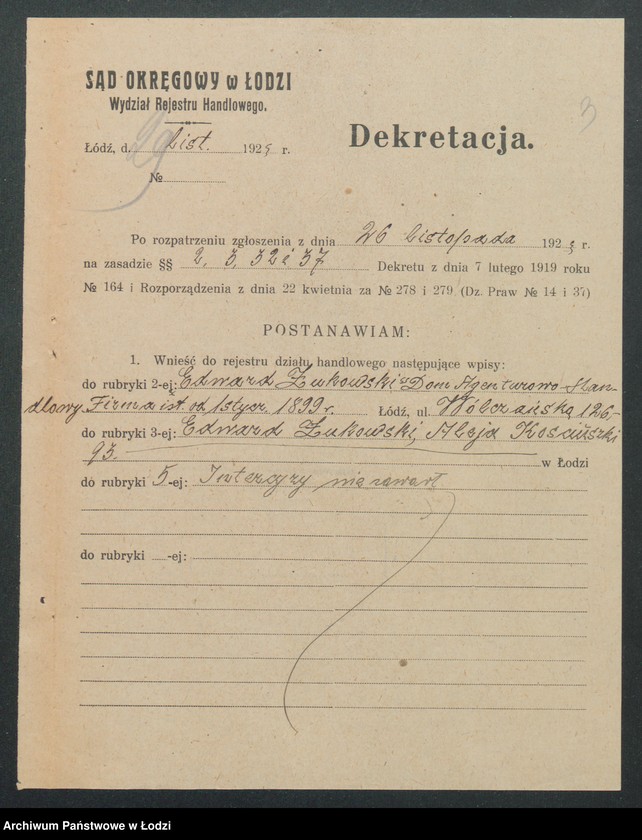 3
SĄD OKRĘGOWY w ŁODZI
Wydział Rejestru Handlowego.
Dekretacja.
Łódź, d. 29 List. 1925 r.
№
Po rozpatrzeniu zgłoszenia z dnia 26 listopada 1925 r.
na zasadzie §§ 2, 3, 32 i 37 Dekretu z dnia 7 lutego 1919 roku
№ 164 i Rozporządzenia z dnia 22 kwietnia za № 278 i 279 (Dz. Praw № 14 i 37)
POSTANAWIAM:
1. Wnieść do rejestru działu handlowego następujące wpisy:
do rubryki 2-ej: Edward Żukowski Dom Agenturowo-Han-
dlowy. Firma ist. od 1 stycz. 1899 r. Łódź, ul. Wólczańska 126.-
do rubryki 3-ej: Edward Żukowski, Aleja Kosciuszki
93. w Łodzi
do rubryki 5-ej: Intercyzy nie zawarł
do rubryki -ej:
Archiwum Państwowe w Łodzi